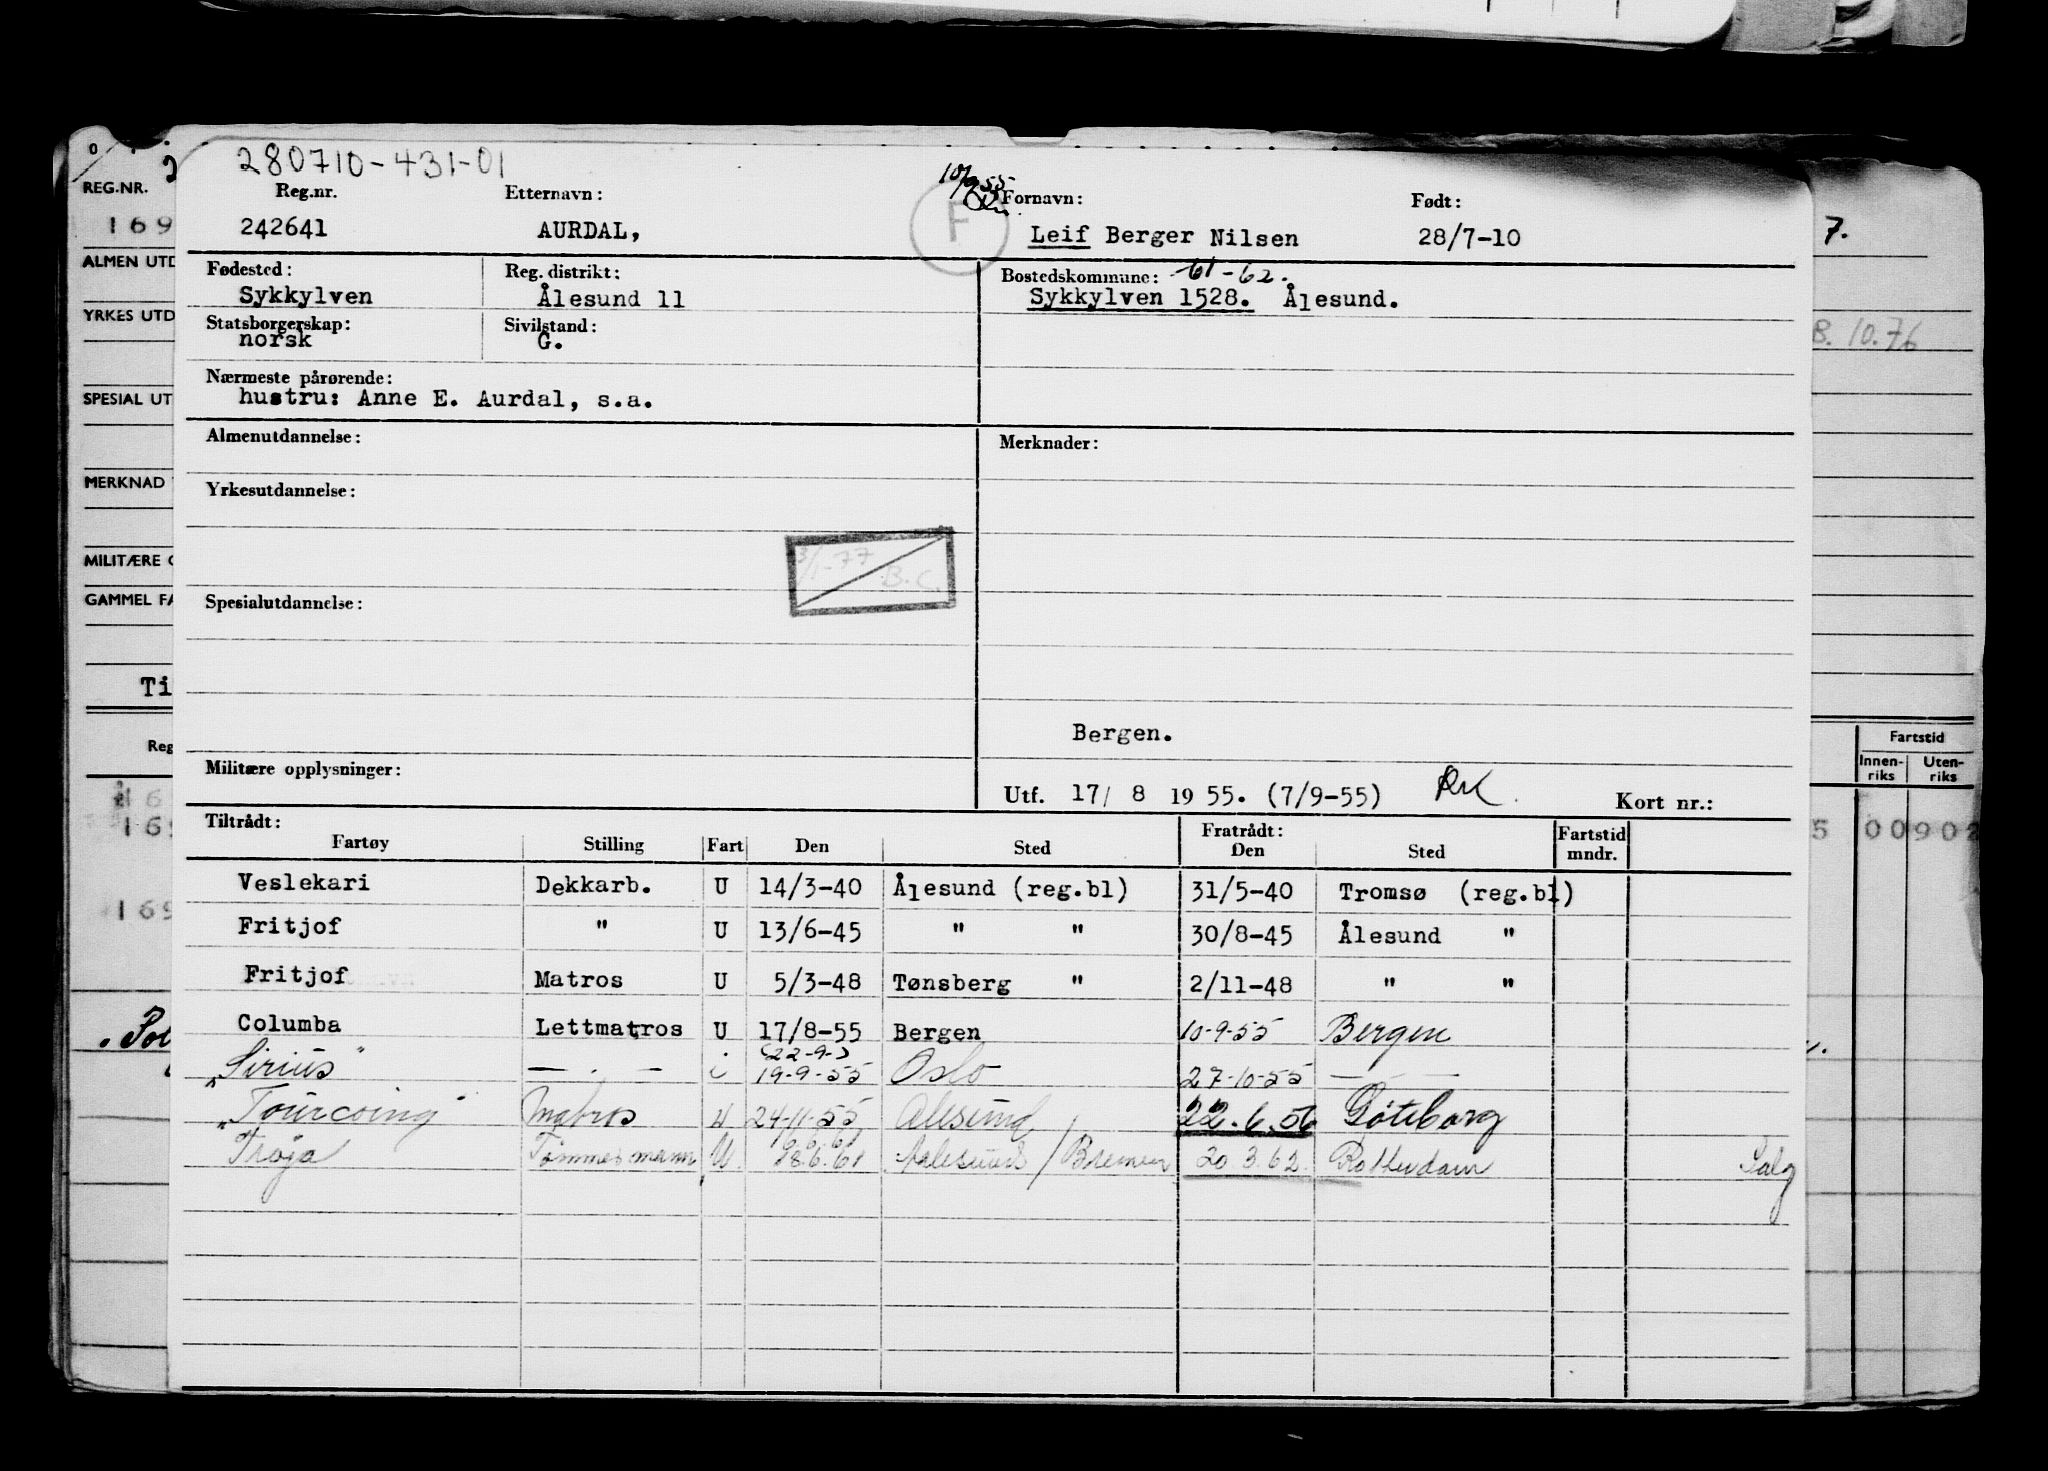 280710-431-01
Reg.nr. Etternavn: 10/9 55 Fornavn: Født:
242641 AURDAL, F Leif Berger Nilsen 28/7-10
Fødested: Reg. distrikt: Bostedskommune: 61-62.
Sykkylven Ålesund 11 Sykkylven 1528. Ålesund.
Statsborgerskap: Sivilstand:
norsk G.
Nærmeste pårørende:
hustru: Anne E. Aurdal, s.a.
Almenutdannelse: Merknader:
Yrkesutdannelse:
3/1-77 B.C.
Spesialutdannelse:
Bergen.
Militære opplysninger:
Utf. 17/ 8 1955. (7/9-55) Kort nr.:
Tiltrådt: Fratrådt:
Fartøy Stilling Fart Den Sted Den Sted Fartstid mndr.
Veslekari Dekkarb. U 14/3-40 Ålesund (reg.bl) 31/5-40 Tromsø (reg.bl)
Fritjof " U 13/6-45 " " 30/8-45 Ålesund "
Fritjof Matros U 5/3-48 Tønsberg " 2/11-48 " "
Columba Lettmatros U 17/8-55 Bergen 10-9-55 Bergen
(22-9-)
"Sirius" — . — i 19-9-55 Oslo 27-10-55 — — —
"Tourcoing" Matros U 24-11-55 Alesund 22.6.56 Göteborg
Troja Tømmermann U 18.6.61 Aalesund / Bremen 20.3.62. Rotterdam Salg
REG.NR.
169
ALMEN UTD
YRKES UTD
SPESIAL UT
MERKNAD
MILITÆRE
GAMMEL FA
Ti
Reg
169
169
7.
8.10.76
Fartstid
Innenriks Utenriks
5 00902